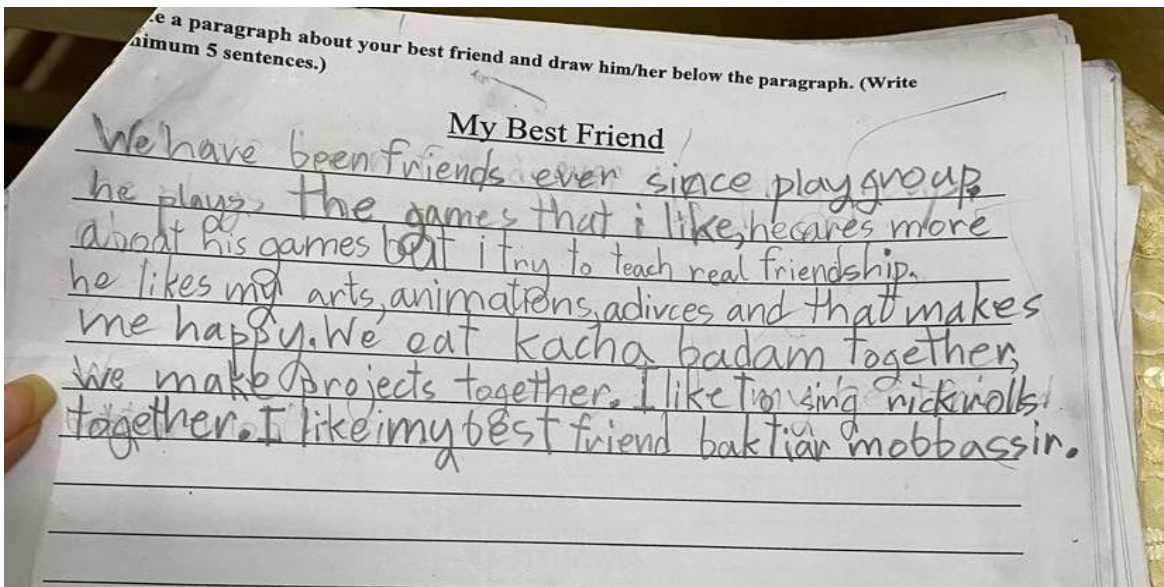 e a paragraph about your best friend and draw him/her below the paragraph. (Write
nimum 5 sentences.)
My Best Friend
We have been friends ever since playgroup,
he plays the games that i like, he cares more
about his games but i try to teach real friendship.
he likes my arts, animations, adivces and that makes
me happy. We eat kacha badam together,
We make projects together. I like to sing rickrolls
together. I like my best friend baktiar mobbassir.